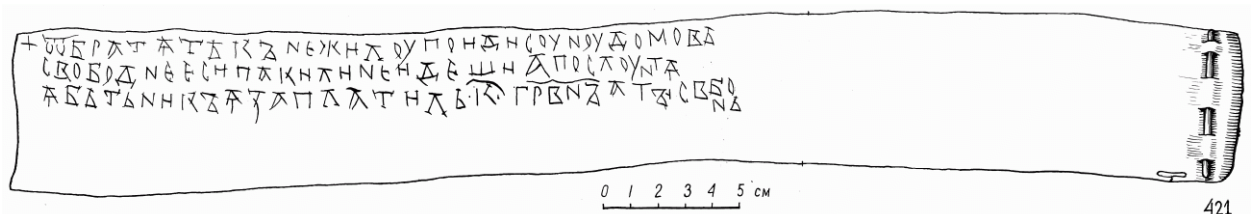 + ѾБРАТѦТѢКЪНЕЖИЛОУПОИДИСОУНОУДОМОВЬ
СВОБОДНЕЕСИПАКИЛИНЕИДЕШИАПОСЛОУНТѦ
ѦБЬТЬНИКЪѦЗАПЛАТИЛЬ·К҃·ГР҃ВНЪАТꙐСВБО
НЪ
0 1 2 3 4 5 см
421